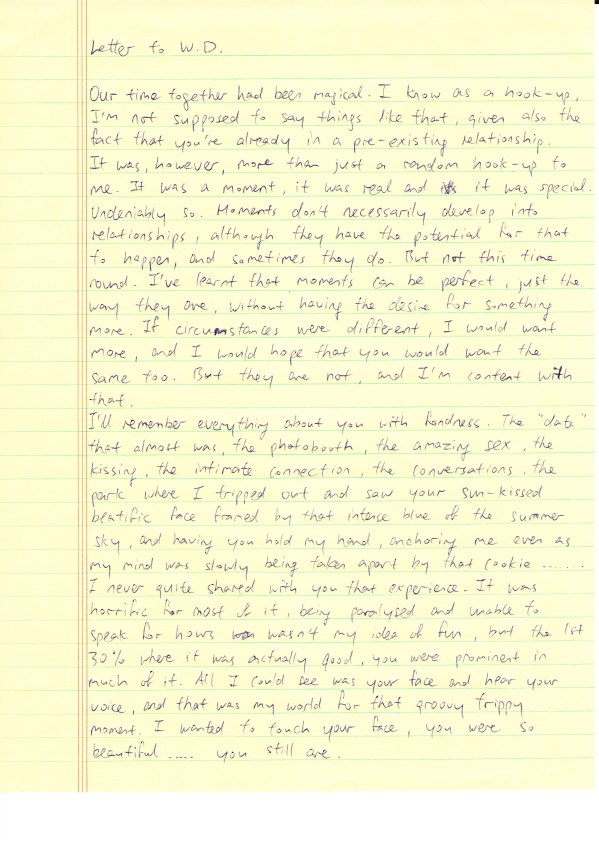 Letter to W.D.
Our time together had been magical. I know as a hook-up,
I'm not supposed to say things like that, given also the
fact that you're already in a pre-existing relationship.
It was, however, more than just a random hook-up to
me. It was a moment, it was real and it was special.
Undeniably so. Moments don't necessarily develop into
relationships, although they have the potential for that
to happen, and sometimes they do. But not this time
round. I've learnt that moments can be perfect, just the
way they are, without having the desire for something
more. If circumstances were different, I would want
more, and I would hope that you would want the
same too. But they are not, and I'm content with
that.
I'll remember everything about you with fondness. The "date"
that almost was, the photobooth, the amazing sex, the
kissing, the intimate connection, the conversations, the
park where I tripped out and saw your sun-kissed
beatific face framed by that intense blue of the summer
sky, and having you hold my hand, anchoring me even as
my mind was slowly being taken apart by that cookie .......
I never quite shared with you that experience. It was
horrific for most of it, being paralysed and unable to
speak for hours wasn't my idea of fun, but the 1st
30% where it was actually good, you were prominent in
much of it. All I could see was your face and hear your
voice, and that was my world for that groovy trippy
moment. I wanted to touch your face, you were so
beautiful ..... you still are.